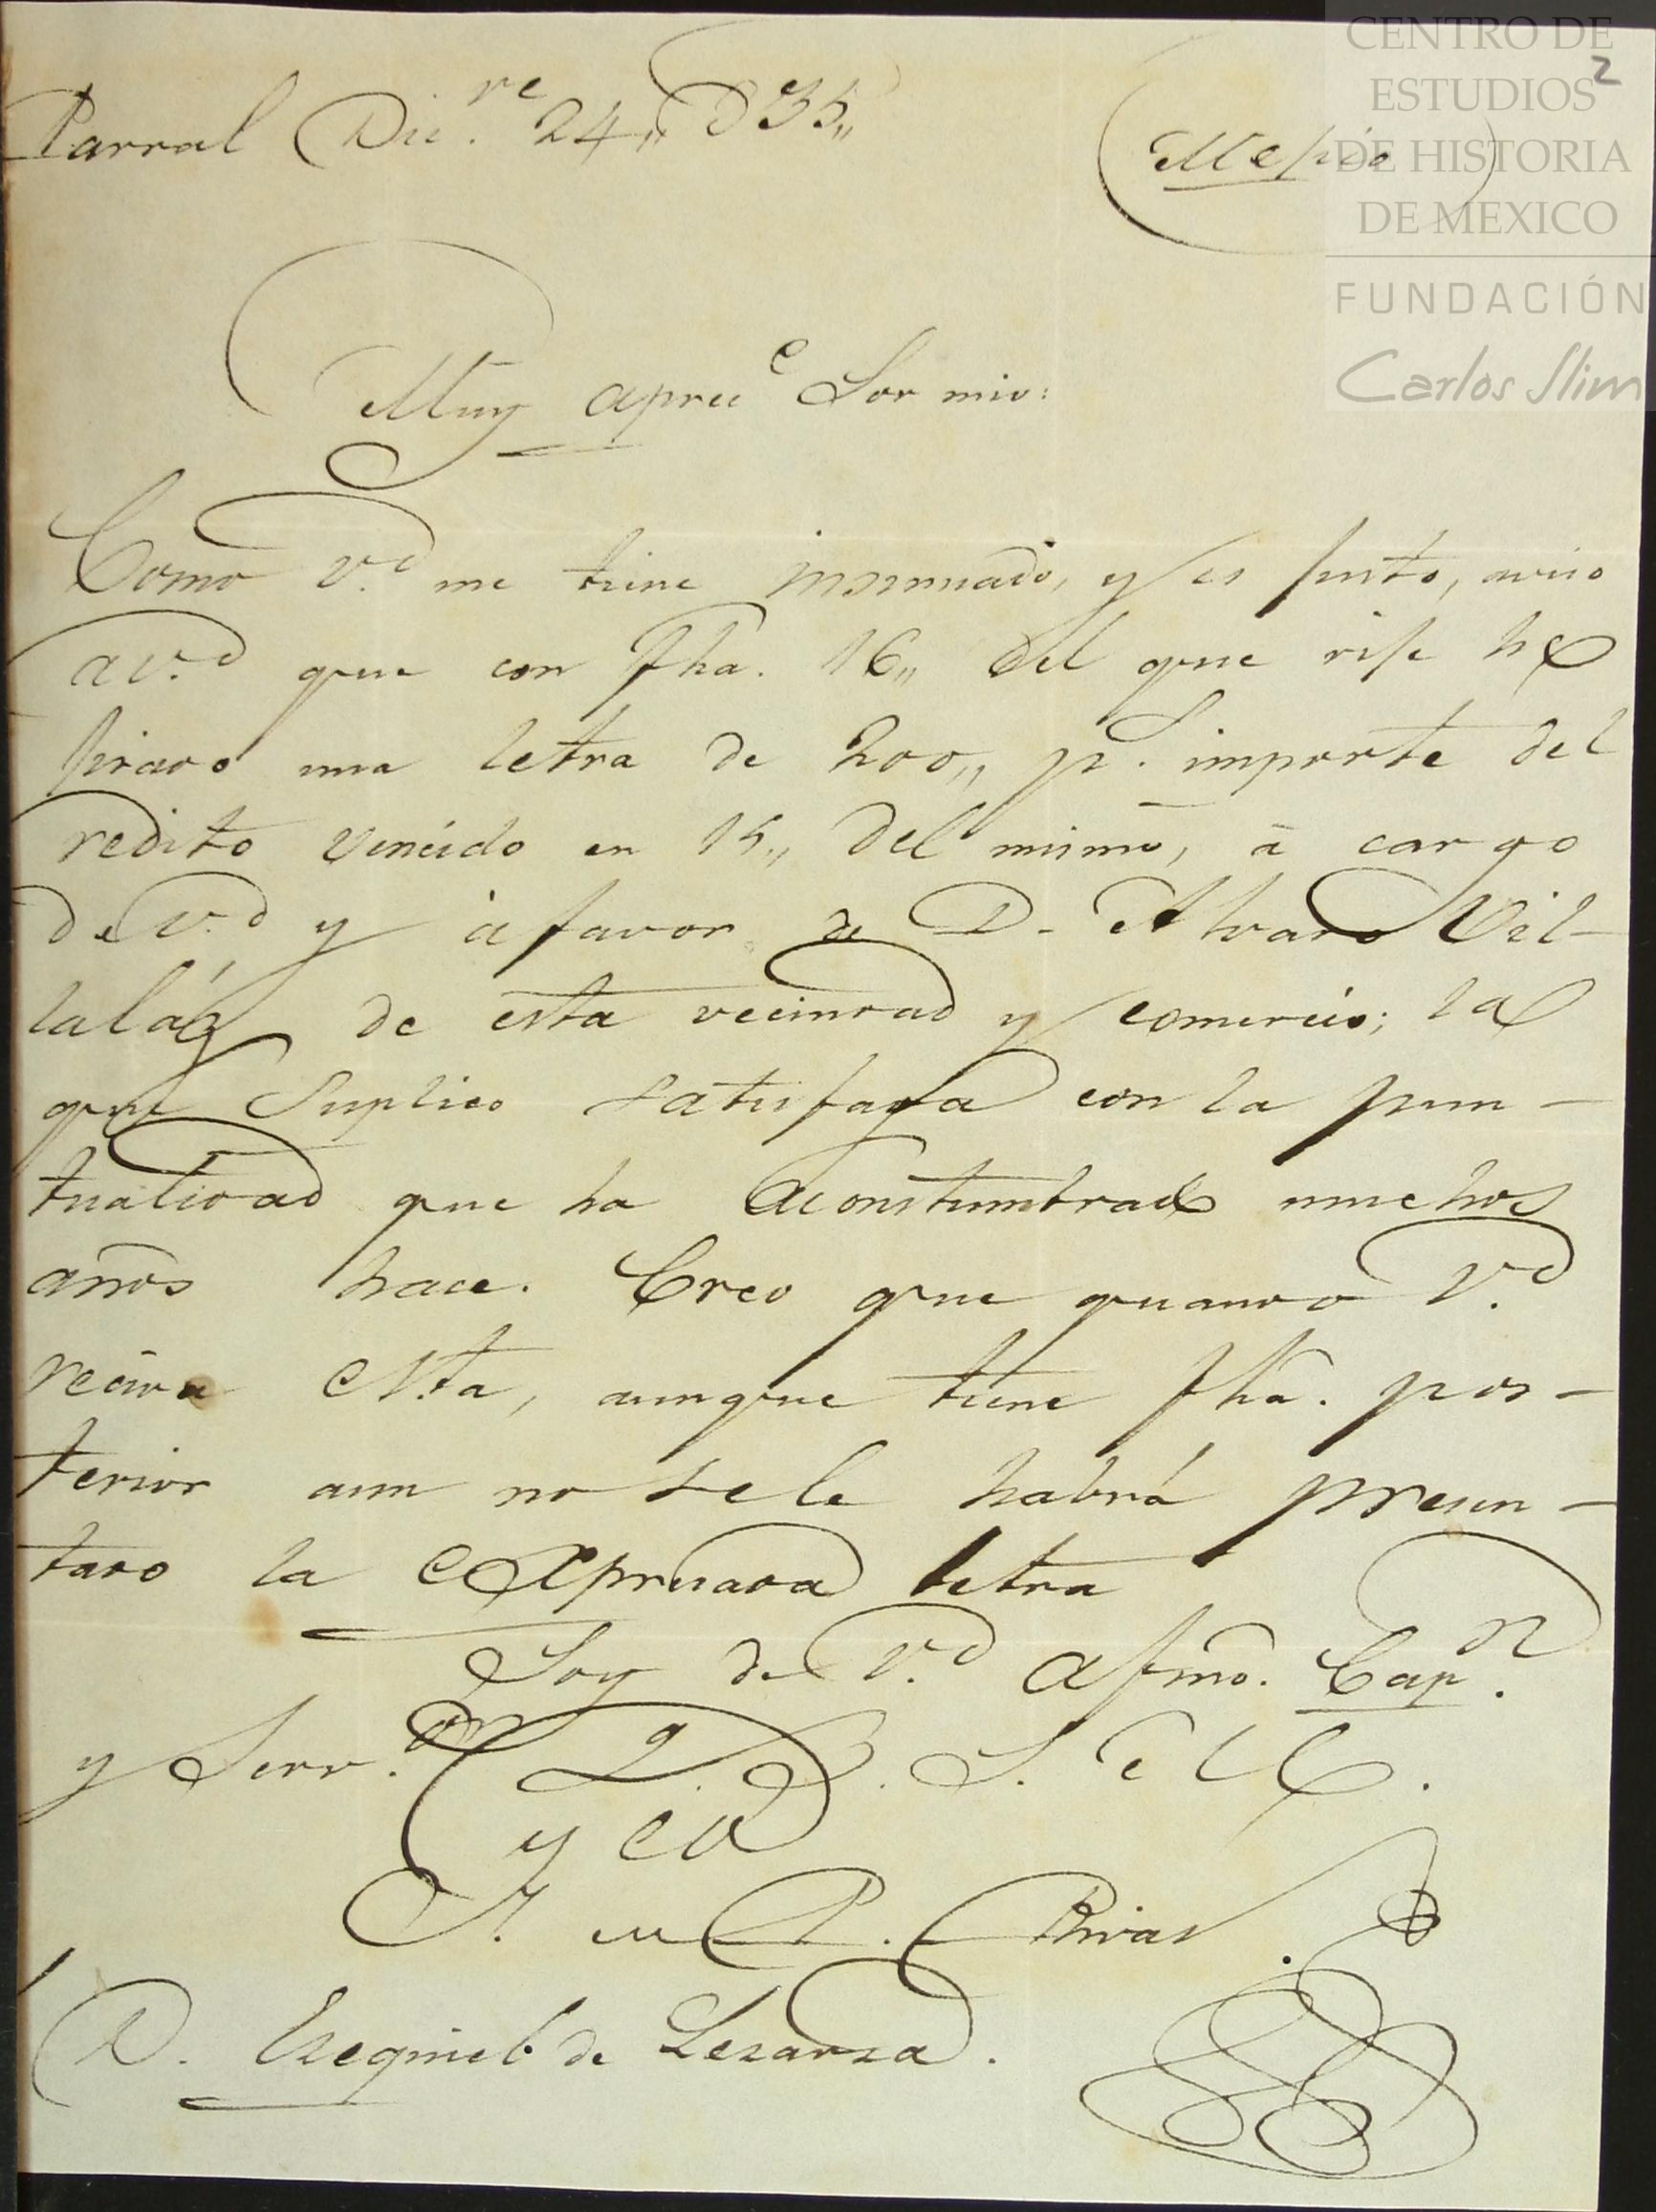 CENTRO DE
ESTUDIOS
DE HISTORIA
DE MEXICO
FUNDACIÓN
Carlos Slim
2
Parral Dic.re 24,, D 35,,
Muy aprec.e Sor mio:
Como V.d me tiene insinuado, y es justo, aviso
a V.d que con fha. 16,, del que rije he
jirado una letra de 200,, p.s importe del
redito vencido en 15,, del mismo, á cargo
de V.d y á favor de D. Alvaro Vil-
laláz de esta vecindad y comercio; la
que suplico satisfaga con la pun-
tualidad que ha acoustumbrado muchos
años hace. Creo que quando V.d
reciva esta, aunque tiene fha. pos-
terior aun no se le habrá presen-
tado la expresada letra
Soy de V.d afmo. Cap.n
y Serv.or Q. B. S. M.
P. Rivas
D. Ezequiel de Lezarza.